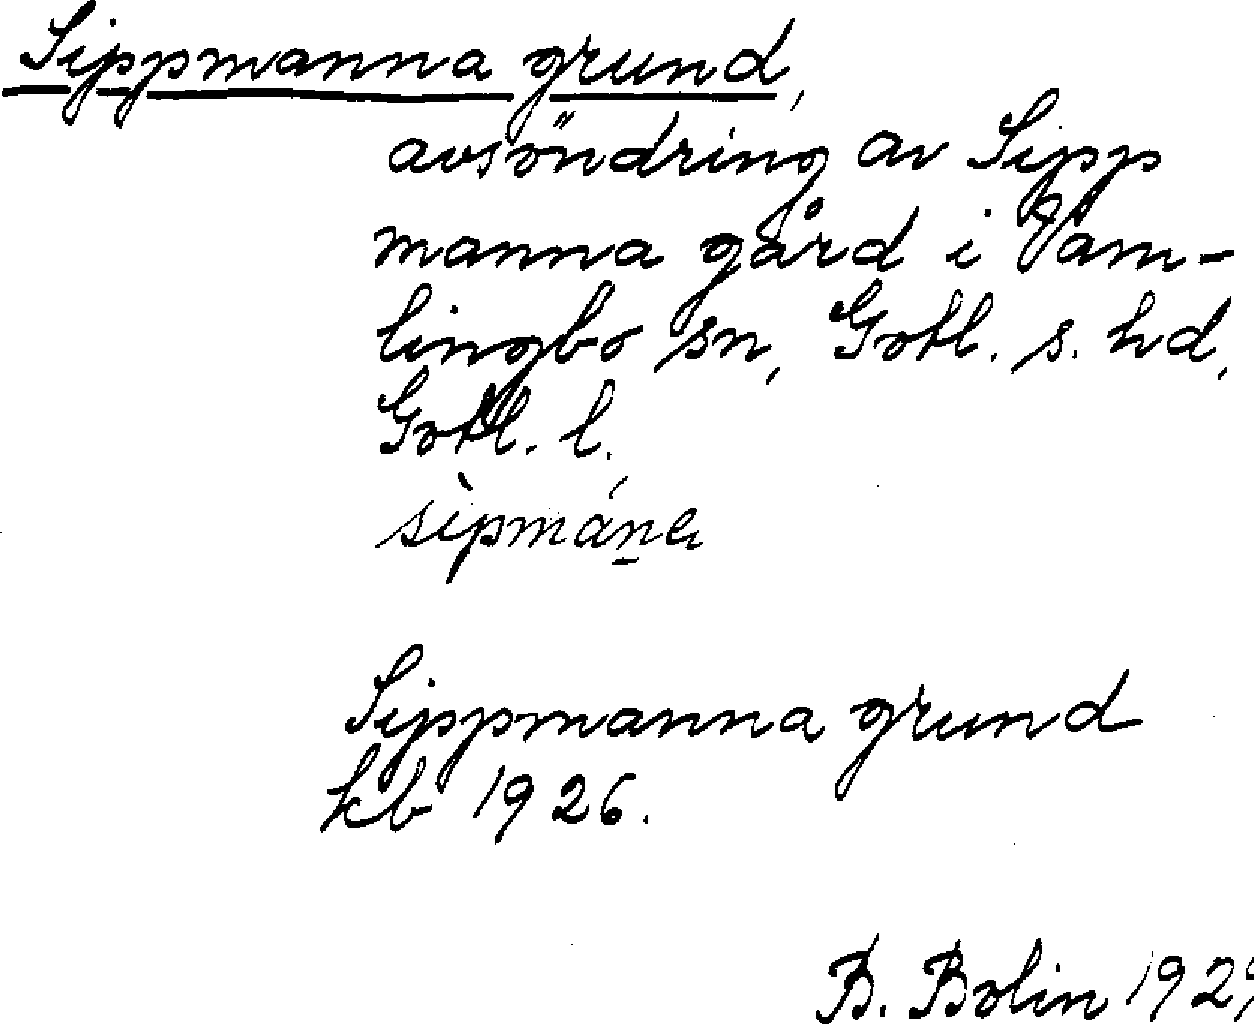 Sippmanna grund,
avsöndring av Sipp
manna gård i Vam-
lingbo sn, Gotl. s. hd,
Gotl. l.
sìpmáṉa
Sippmanna grund
kb 1926.
B. Bolin